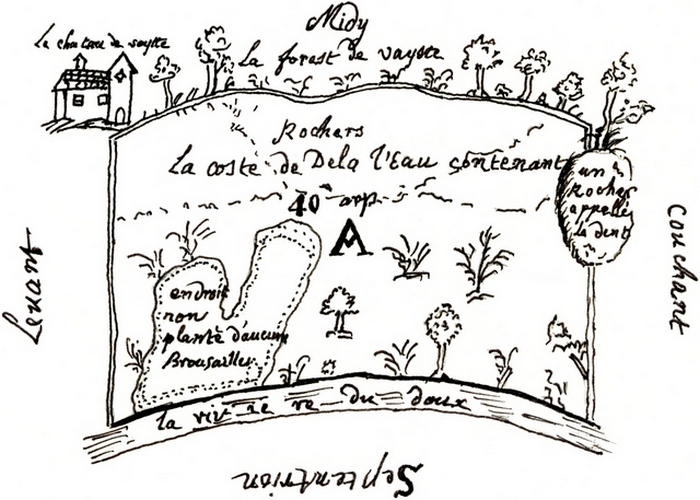 Midy
la chateau de vaytte
la forest de vaytte
Rochers
la coste de Dela l'Eau contenant
40 arp.
A
un
Rocher
appellé
la dent
Levant
Couchant
endroit
non
planté d'aucune
Brousailles
la riviere du doux
Septentrion